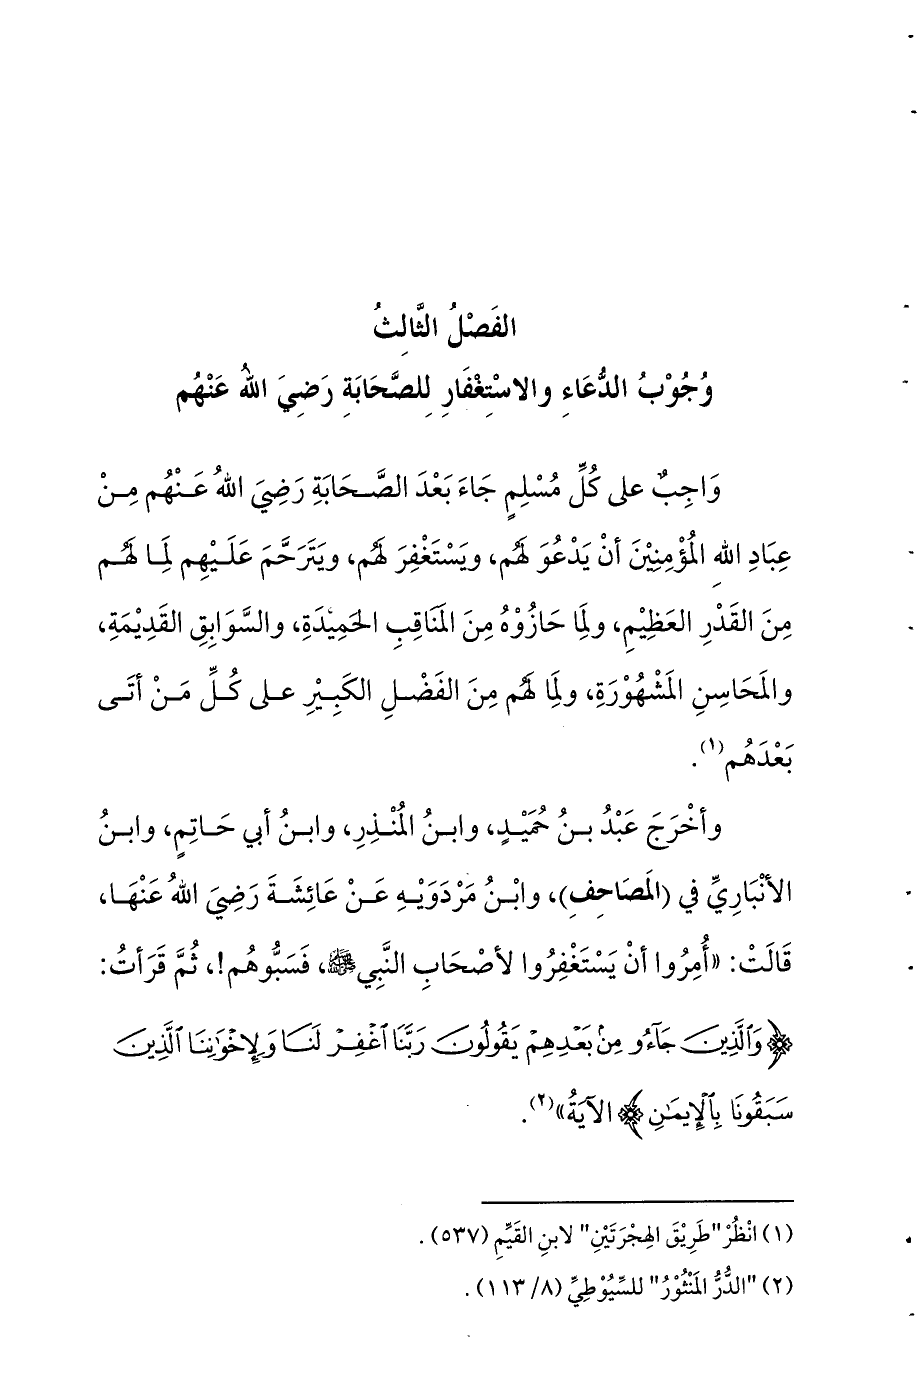 الفَصْلُ الثَّالِثُ
وُجُوْبُ الدُّعَاءِ والاسْتِغْفَارِ لِلصَّحَابَةِ رَضِيَ اللهُ عَنْهُم
وَاجِبٌ على كُلِّ مُسْلِمٍ جَاءَ بَعْدَ الصَّحَابَةِ رَضِيَ اللهُ عَنْهُم مِنْ
عِبَادِ اللهِ المُؤْمِنِيْنَ أنْ يَدْعُوَ لَهُم، ويَسْتَغْفِرَ لَهُم، ويَتَرَحَّمَ عَلَيْهِم لِمَا لَهُم
مِنَ القَدْرِ العَظِيْمِ، ولِمَا حَازُوْهُ مِنَ المَنَاقِبِ الحَمِيْدَةِ، والسَّوَابِقِ القَدِيْمَةِ،
والمَحَاسِنِ المَشْهُوْرَةِ، ولِمَا لَهُم مِنَ الفَضْلِ الكَبِيْرِ على كُلِّ مَنْ أتَى
بَعْدَهُم(١).
وأخْرَجَ عَبْدُ بنُ حُمَيْدٍ، وابنُ المُنْذِرِ، وابنُ أبي حَاتِمٍ، وابنُ
الأنْبَارِيِّ في (المَصَاحِفِ)، وابْنُ مَرْدَوَيْهِ عَنْ عَائِشَةَ رَضِيَ اللهُ عَنْهَا،
قَالَتْ: «أُمِرُوا أنْ يَسْتَغْفِرُوا لأصْحَابِ النَّبِي ﷺ، فَسَبُّوهُم!، ثُمَّ قَرَأتُ:
﴿وَٱلَّذِينَ جَآءُو مِنۢ بَعْدِهِمْ يَقُولُونَ رَبَّنَا ٱغْفِرْ لَنَا وَلِإِخْوَٰنِنَا ٱلَّذِينَ
سَبَقُونَا بِٱلْإِيمَٰنِ﴾ الآيَةُ»(٢).
(١) انْظُرْ "طَرِيْقَ الهِجْرَتَيْنِ" لابنِ القَيِّمِ (٥٣٧) .
(٢) "الدُّرُّ المَنْثُوْرُ" للسِّيُوْطِيِّ (٨/ ١١٣) .